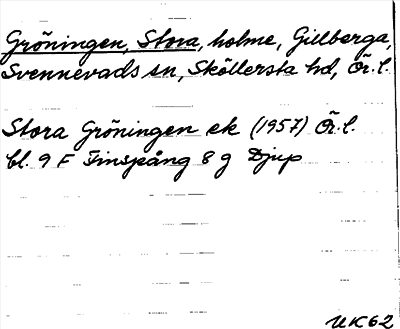 Gröningen, Stora, holme, Gillberga,
Svennevads sn, Sköllersta hd, Ör. l.
Stora Gröningen ek (1957) Ör. l.
bl. 9 F Finspång 8 g Djup
UK62